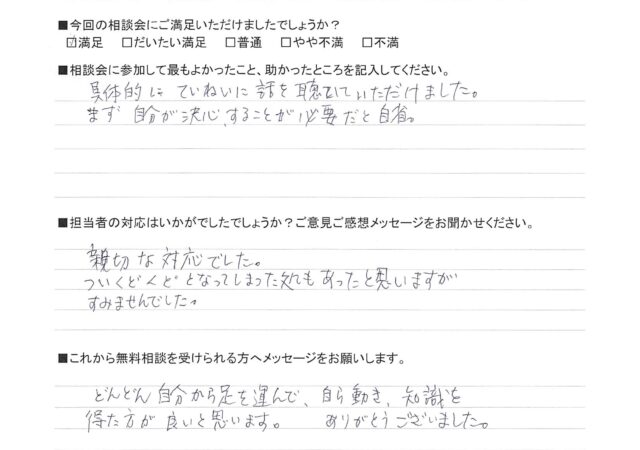 ■今回の相談会にご満足いただけましたでしょうか？
☑満足 □だいたい満足 □普通 □やや不満 □不満
■相談会に参加して最もよかったこと、助かったところを記入してください。
具体的に ていねいに 話を 聴いていただけました。
まず 自分が決心することが必要だと自省。
■担当者の対応はいかがでしたでしょうか？ご意見ご感想メッセージをお聞かせください。
親切な対応でした。
ついくどくどとなってしまった処もあったと思いますが
すみませんでした。
■これから無料相談を受けられる方へメッセージをお願いします。
どんどん自分から足を運んで、自ら動き、知識を
得た方が良いと思います。 ありがとうございました。